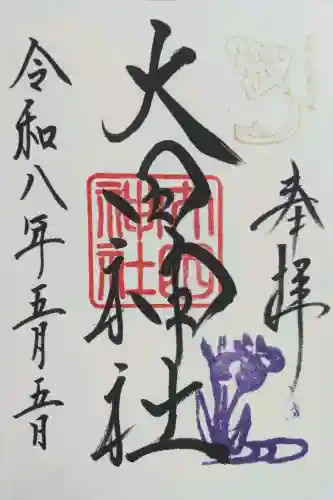 奉拝
大田神社
大田神社
令和八年五月五日